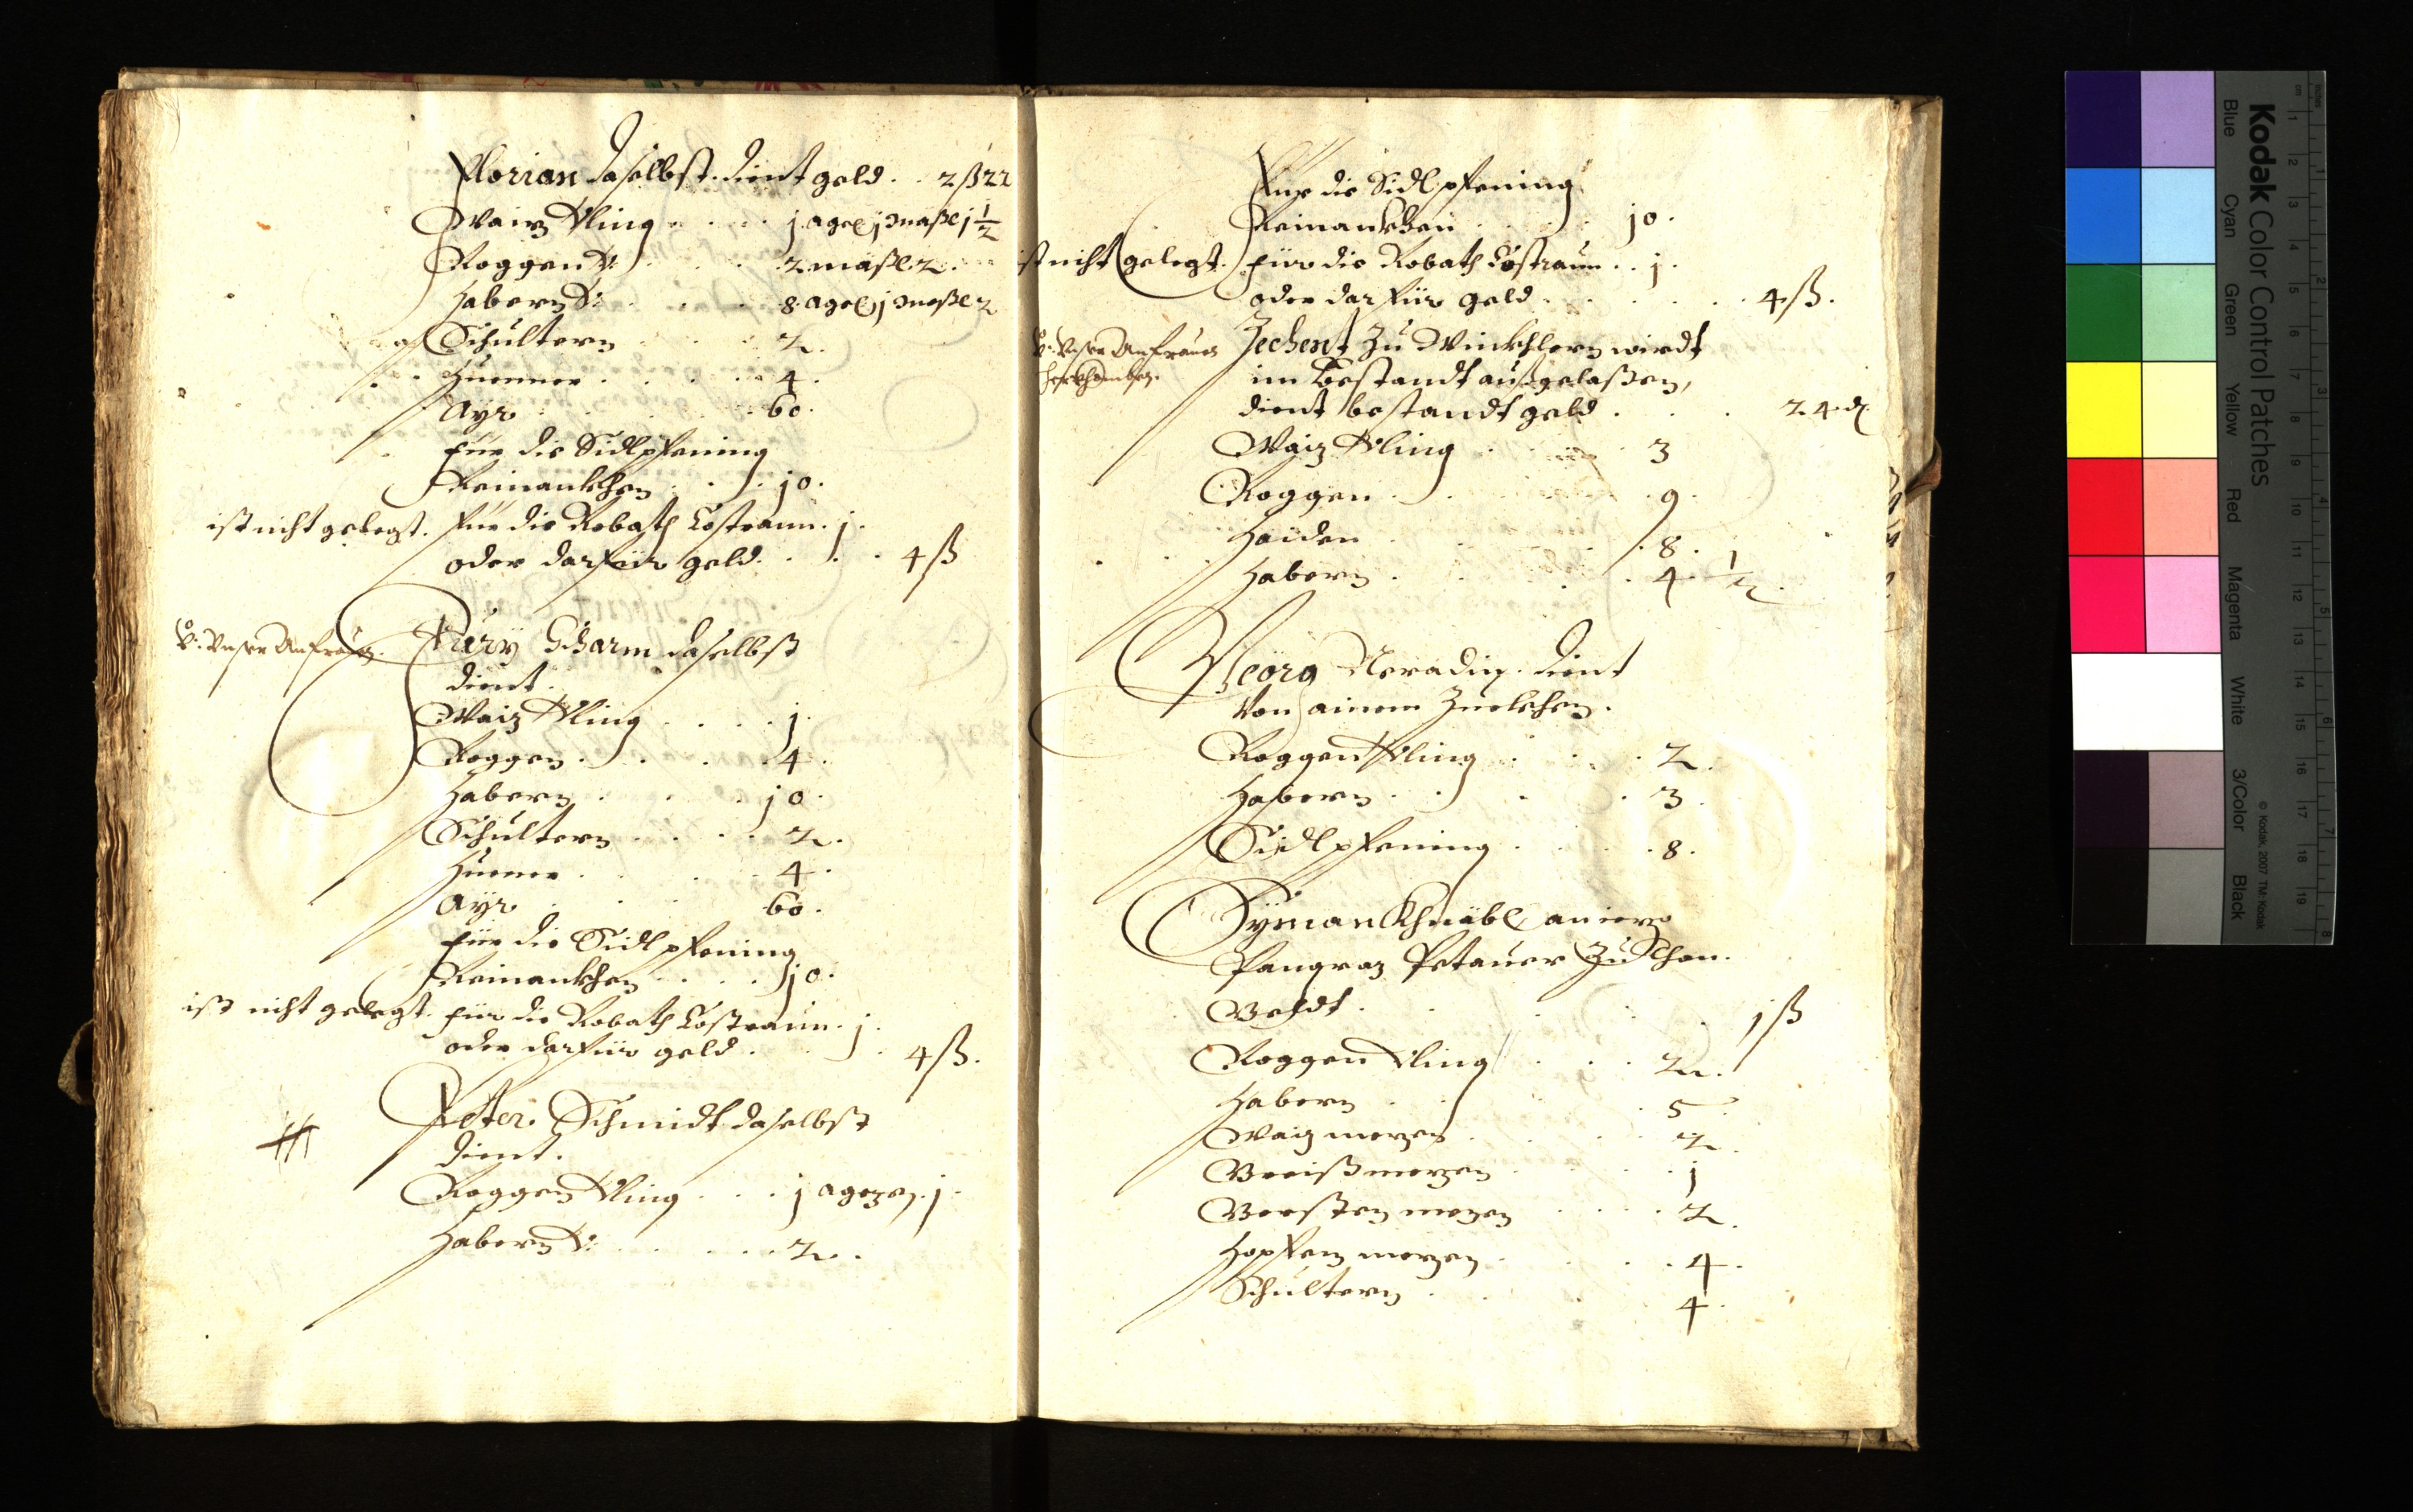 Florian daselbst. dient geld . . 2 ß 22
Waiz Vling . . . . j agel j maßl j ½
Roggen V: . . . 2 maßl 2.
Habern V: . . . 8 agel j maßl 2
Schultern . . . 2.
Huenner . . . . 4.
Ayr . . . . 60.
Für die Sidlpfening
Reinankhen . . . j0.
ist nicht gelegt. Für die Robath Costraun . j.
oder darfür geld . . . . 4 ß
V: Vnser Anfrauen. Jury Scharm daselbst
dient.
Waiz Vling . . . . j.
Roggen . . . . 4.
Habern . . . . j0.
Schultern . . . . 2.
Huener . . . . 4.
Ayr . . . 60.
Für die Sidlpfening
Reinankhen . . . . j0.
ist nicht gelegt. Für die Robath Costraun . j.
oder darfür geld . . . 4 ß.
Peter Schmidt daselbst
dient.
Roggen Vling . . . j agezen j.
Habern V: . . . . 2.
Für die Sidlpfening
Reinankhen . . . j0.
ist nicht gelegt. Für die Robath Costraun . . j.
oder darfür geld . . . . . 4 ß.
V: Vnser Anfrauen Zechent Zu Winkhlern wirdt
herkhomben. im Bestandt außgelaßen,
dient bestandt geld . . . 24 d.
Waiz Vling . . . 3
Roggen . . . . 9.
Haiden . . . . 8.
Habern . . . . 4 ½.
Georg Neradin. dient
Von ainem Zuelehen.
Roggen Vling . . . 2.
Habern . . . . 3.
Sidlpfening . . . . 8.
Syman Khnäbl an iezo
Pangraz Petauer
Geldt . . . . . j ß
Roggen Vling . . . 2.
Habern . . . . 5.
Waiz mezen . . . . 2.
Greiß mezen . . . . j
Gersten mezen . . . . 2.
Hopfen mezen . . . . 4.
Schultern . . . . 4.